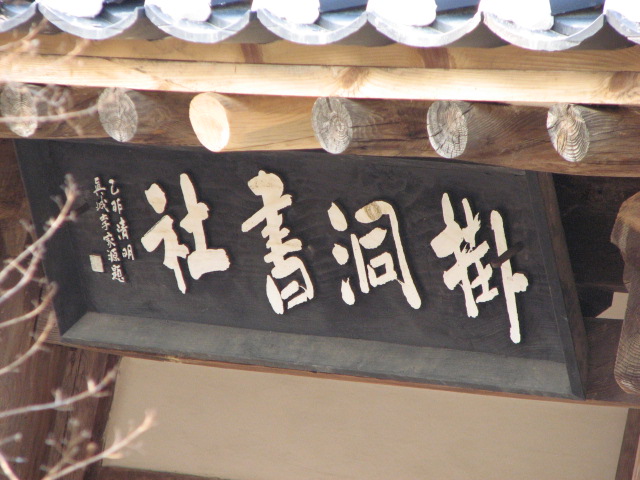 掛洞書社
乙卯清明
眞城李家源題